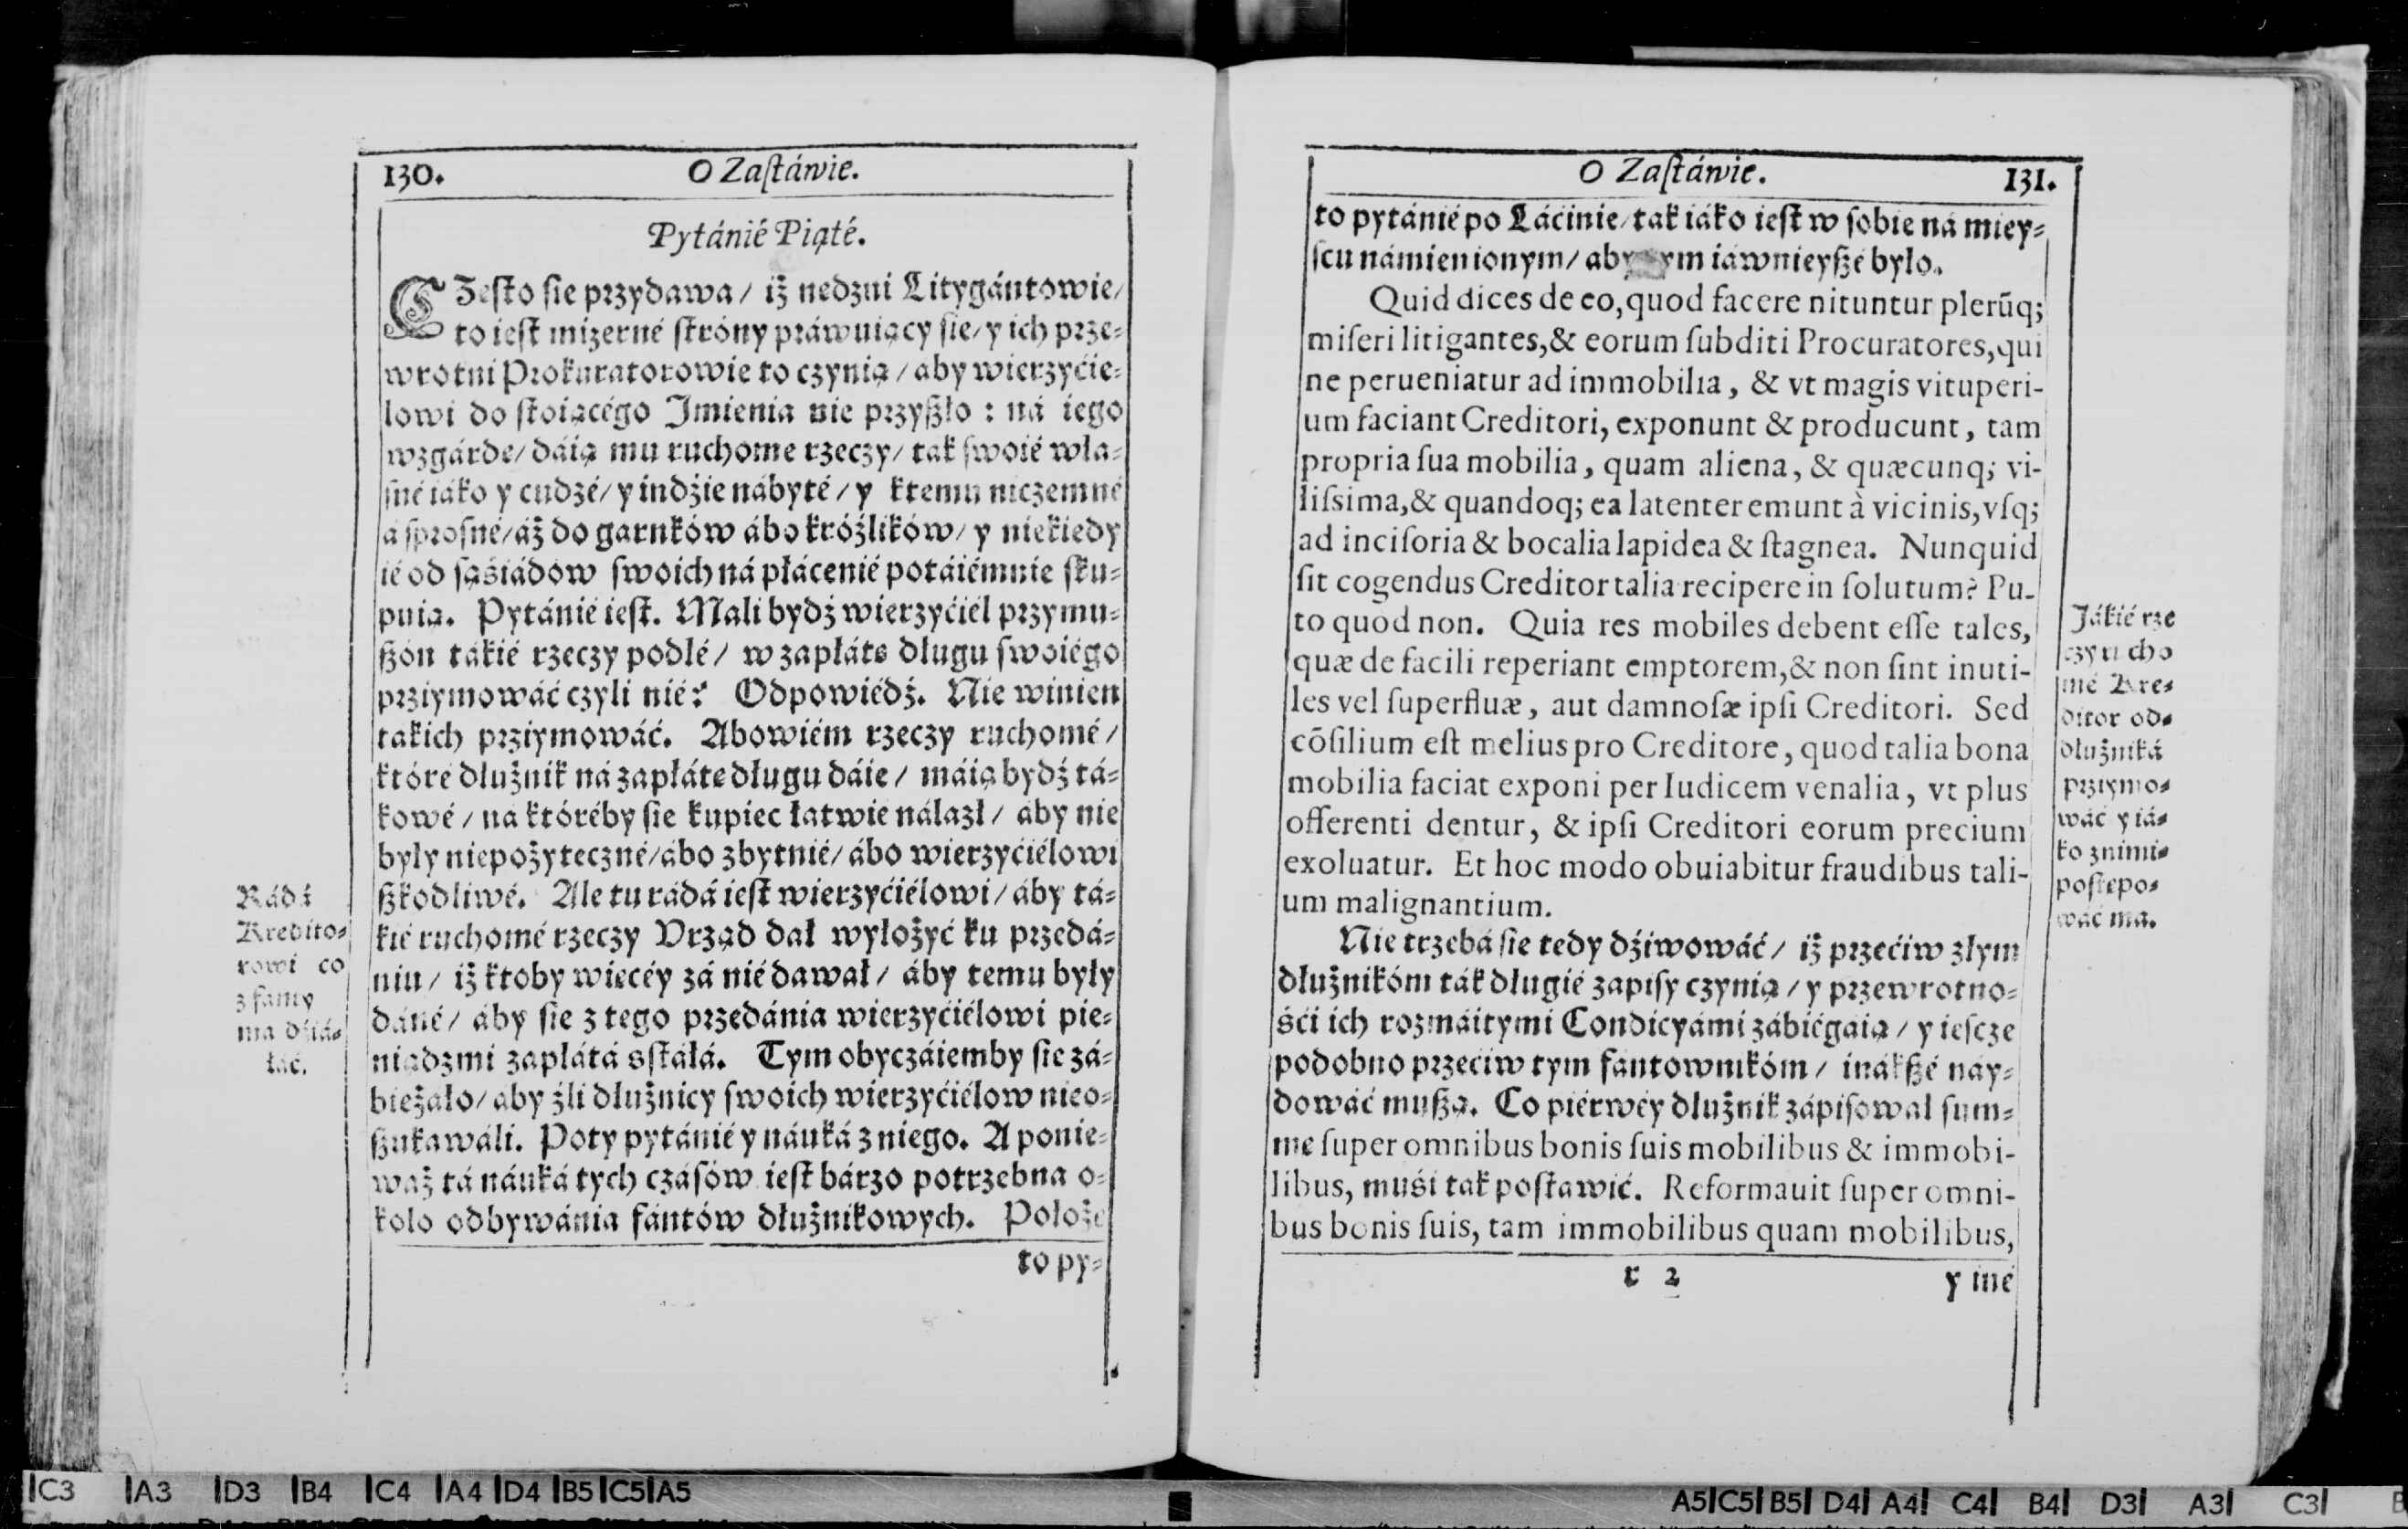 130. O Zaſtáwie.
Pytánié Piąté.
CZeſto ſie przydawa/ iż nedzni Litygántowie/
to ieſt mizerné ſtróny práwuiący ſie/ y ich prze-
wrotni Prokuratorowie to czynią/ aby wierzyćie-
lowi do ſtoiącégo Imienia nie przyßło: ná iego
wzgárde/ dáią mu ruchome rzeczy/ tak ſwoié wła-
ſné iáko y cudzé/ y indźie nábyté/ y ktemu niczemné
á ſproſné/ áż do garnków ábo króźlików/ y niekiedy
ié od ſąśiádów ſwoich ná płácenié potáiémnie ſku-
puią. Pytánié ieſt. Mali bydź wierzyćiél przymu-
ßón tákié rzeczy podlé/ w zapłáte długu ſwoiégo
prziymowáć czyli nié? Odpowiédź. Nie winien
takich prziymowáć. Abowiém rzeczy ruchomé/
któré dłużnik ná zapłáte długu dáie/ máią bydź tá-
kowé/ na któréby ſie kupiec łatwie nálazł/ aby nie
były niepożyteczné/ ábo zbytnié/ ábo wierzyćiélowi
ßkodliwé. Ale tu rádá ieſt wierzyćiélowi/ áby tá-
kié ruchomé rzeczy Vrząd dał wyłożyć ku przedá-
niu/ iż ktoby wiecéy zá nié dawał/ áby temu były
dáné/ áby ſie z tego przedánia wierzyćiélowi pie-
niądzmi zapłátá sſtáłá. Tym obyczáiemby ſie zá-
bieżało/ aby źli dłużnicy ſwoich wierzyćiélow nieo-
ßukawáli. Poty pytánié y náuká z niego. A ponie-
waż tá náuká tych czásów ieſt bárzo potrzebna o-
koło odbywánia fántów dłużnikowych. Położe
to py-
Rádá
Kredito-
rowi co
z fanty
ma dźiá-
łáć.
O Zaſtáwie. 131.
to pytánié po Láćinie/ tak iáko ieſt w ſobie ná miey-
ſcu námienionym/ iáwnieyßé było.
Quid dices de eo, quod facere nituntur plerũq;
miſeri litigantes, & eorum ſubditi Procuratores, qui
ne perueniatur ad immobilia, & vt magis vituperi-
um faciant Creditori, exponunt & producunt, tam
propria ſua mobilia, quam aliena, & quæcunq; vi-
liſsima, & quandoq; ea latenter emunt à vicinis, vſq;
ad inciſoria & bocalia lapidea & ſtagnea. Nunquid
ſit cogendus Creditor talia recipere in ſolutum? Pu-
to quod non. Quia res mobiles debent eſſe tales,
quæ de facili reperiant emptorem, & non ſint inuti-
les vel ſuperfluæ, aut damnoſæ ipſi Creditori. Sed
cõſilium eſt melius pro Creditore, quod talia bona
mobilia faciat exponi per Iudicem venalia, vt plus
offerenti dentur, & ipſi Creditori eorum precium
exoluatur. Et hoc modo obuiabitur fraudibus tali-
um malignantium.
Nie trzebá ſie tedy dźiwowáć/ iż przećiw złym
dłużnikóm ták długié zapiſy czynią/ y przewrotno-
śći ich rozmáitymi Condicyámi zábiégaią/ y ieſcze
podobno przećiw tym fántownikóm/ inákßé náy-
dowáć mußą. Co piérwéy dłużnik zápiſował ſum-
me ſuper omnibus bonis ſuis mobilibus & immobi-
libus, muśi tak poſtawić. Reformauit ſuper omni-
bus bonis ſuis, tam immobilibus quam mobilibus,
r 2 y mé
Jákié rze
czy rucho
mé Kre-
ditor od-
dłużniká
prziymo-
wáć y iá-
ko z nimi-
poſtepo-
wáć ma.
C3 A3 D3 B4 C4 A4 D4 B5 C5 A5
A5 C5 B5 D4 A4 C4 B4 D3 A3 C3